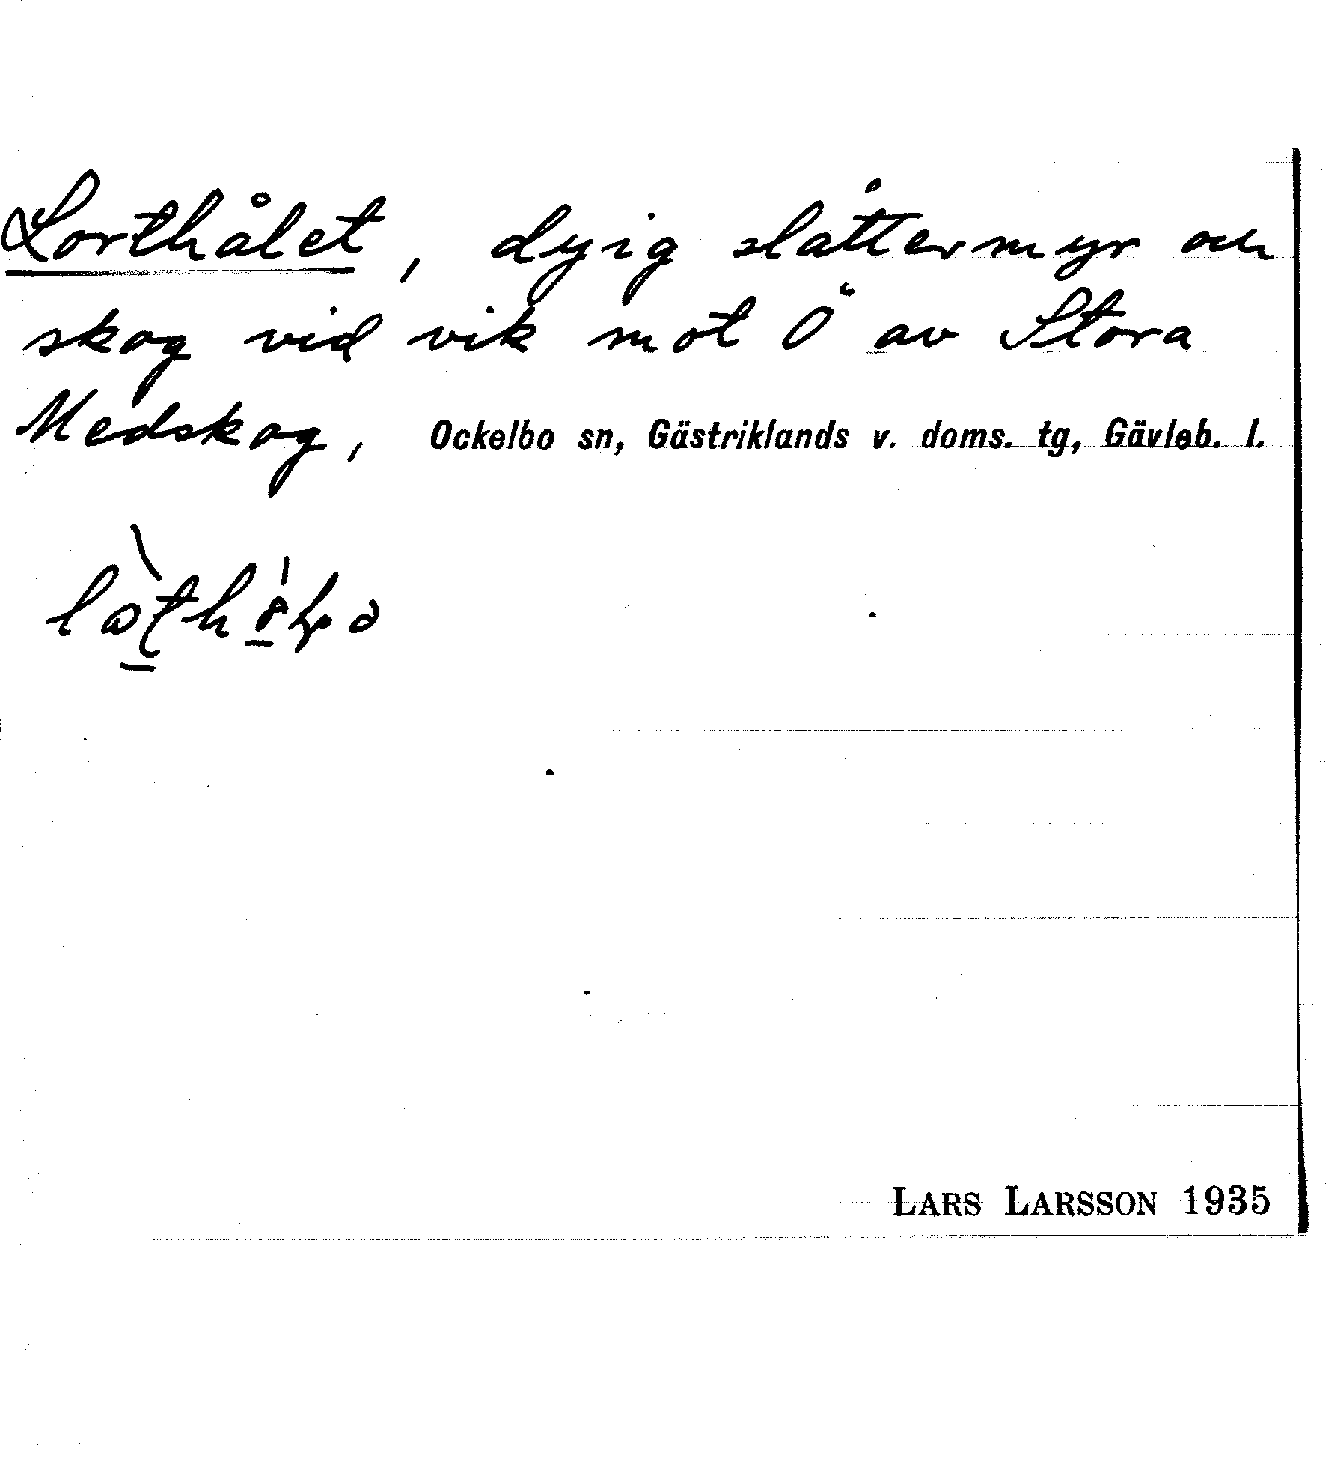 Lorthålet, dyig slåttermyr och
skog vid vik mot Ö av Stora
Medskog, Ockelbo sn, Gästriklands v. doms. tg, Gävleb. l.
LARS LARSSON 1935